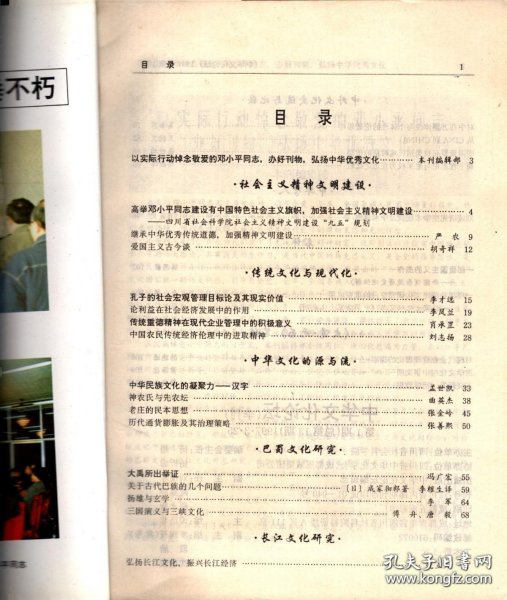 垂不朽
目 录 1
目 录
以实际行动悼念敬爱的邓小平同志,办好刊物,弘扬中华优秀文化…………本刊编辑部 3
·社会主义精神文明建设·
高举邓小平同志建设有中国特色社会主义旗帜,加强社会主义精神文明建设………… 4
——四川省社会科学院社会主义精神文明建设“九五”规划
继承中华优秀传统道德,加强精神文明建设…………严 农 9
爱国主义古今谈…………胡奇祥 12
·传统文化与现代化·
孔子的社会宏观管理目标论及其现实价值…………李才远 15
论利益在社会经济发展中的作用…………李凤兰 19
传统重德精神在现代企业管理中的积极意义…………肖承罡 23
中国农民传统经济伦理中的进取精神…………刘志扬 28
·中华文化的源与流·
中华民族文化的凝聚力——汉字…………孟世凯 33
神农氏与先农坛…………曲英杰 38
老庄的民本思想…………张金岭 45
历代通货膨胀及其治理策略…………张善熙 50
·巴蜀文化研究·
大禹所出举证…………冯广宏 55
关于古代巴族的几个问题…………〔日〕成家彻郎著 李维生译 59
扬雄与玄学…………李 军 64
三国演义与三峡文化…………傅 舟、唐 毅 68
·长江文化研究·
弘扬长江文化,振兴长江经济…………
平同志
孔夫子旧书网
www.kongfz.com